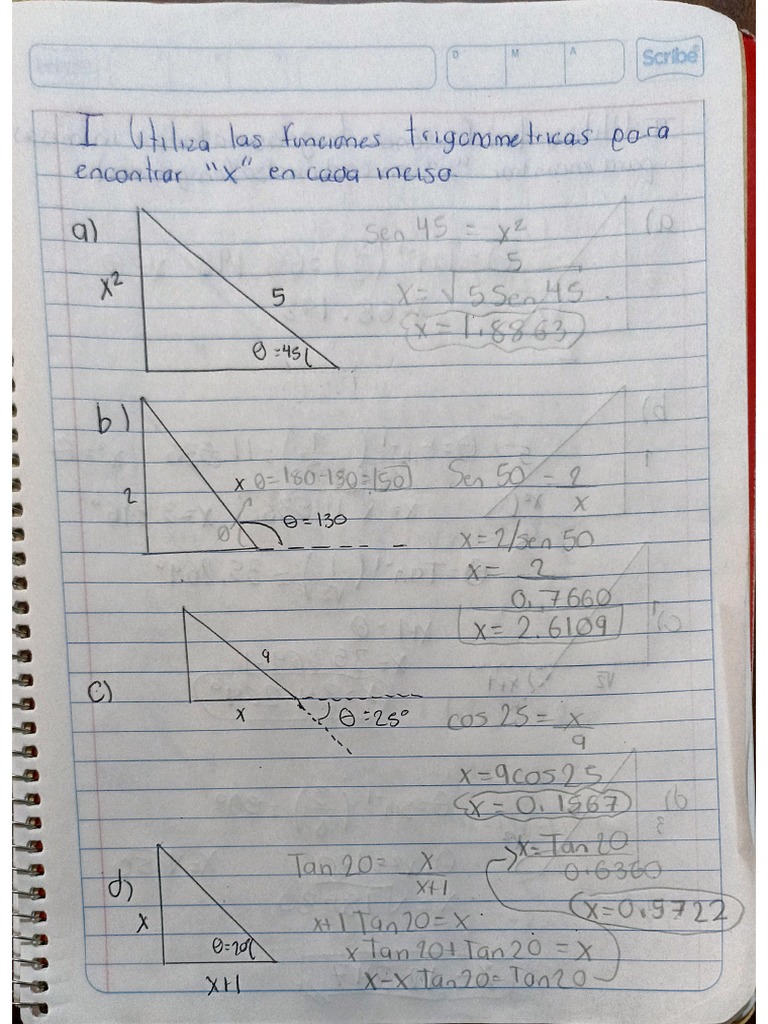 D M A Scribe
I Utiliza las funciones trigonometricas para
encontrar "x" en cada inciso
a)
x²
5
θ=45
Sen 45 = x²
5
x=√5Sen45
x=1.8863
b)
2
x
θ=180-130=50
θ
θ=130
Sen 50 = 2
x
x=2/sen50
x= 2
0.7660
x=2.6109
c)
9
x
θ=25°
cos 25 = x
9
x=9cos25
x=0.1567
d)
x
θ=20
x+1
Tan 20= x
x+1
x+1 Tan 20=x
x Tan 20+Tan 20 = x
x-x Tan 20=Tan 20
x=Tan 20
0.6360
x=0.5722